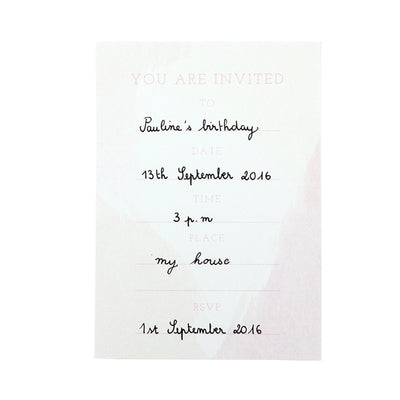 YOU ARE INVITED
TO
Pauline's birthday
DATE
13th September 2016
TIME
3 p.m
PLACE
my house
RSVP
1st September 2016